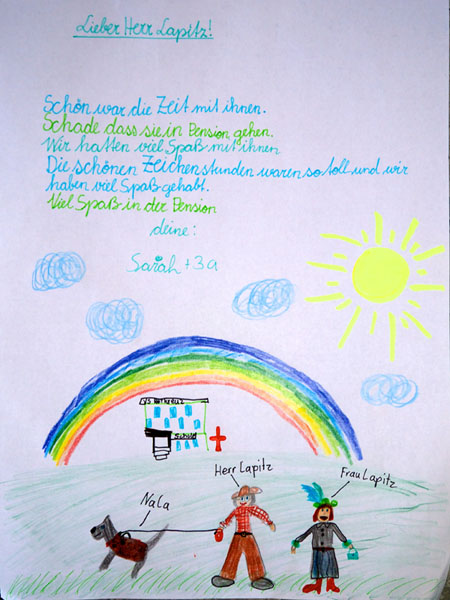 Lieber Herr Lapitz!
Schön war die Zeit mit ihnen.
Schade dass sie in Pension gehen.
Wir hatten viel Spaß mit ihnen
Die schönen Zeichenstunden waren so toll und wir
haben viel Spaß gehabt.
Viel Spaß in der Pension
deine:
Sarah + 3a
SCHULE
Herr Lapitz
Frau Lapitz
NaLa